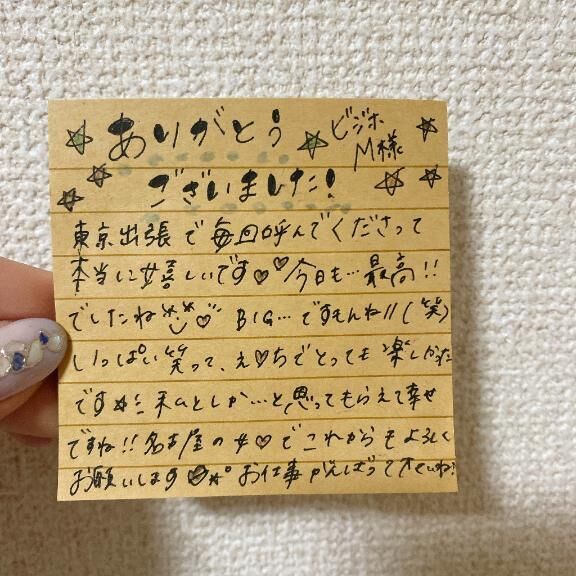 ありがとう
ビジホ
M様
ございました!
東京出張で毎回呼んでくださって
本当に嬉しいです♡♡今日も…最高!!
でしたね♡ BIG…ですもんね!!(笑)
いっぱい笑って、え♡ちでとっても楽しかった
です☆ 私としか…と思ってもらえて幸せ
ですね!!名古屋の女♡でこれからもよろしく
お願いします お仕事がんばって下さいね!